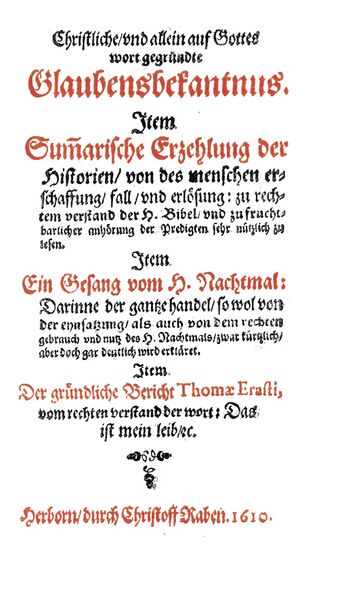 Christliche/vnd allein auf Gottes
wort gegründte
Glaubensbekantnus.
Item
Sum̃arische Erzehlung der
Historien/ von des menschen er⸗
schaffung/ fall/ vnd erlösung: zu rech⸗
tem verstand der H. Bibel/ vnd zu frucht⸗
barlicher anhörung der Predigten sehr nützlich zu
lesen.
Item
Ein Gesang vom H. Nachtmal:
Darinne der gantze handel/ so wol von
der eynsatzung/ als auch von dem rechten
gebrauch vnd nutz des H. Nachtmals/ zwar kürtzlich/
aber doch gar deutlich wird erkläret.
Item
Der gründliche Bericht Thomæ Erasti,
vom rechten verstand der wort: Das
ist mein leib/ ꝛc.
Herborn/ durch Christoff Raben. 1610.